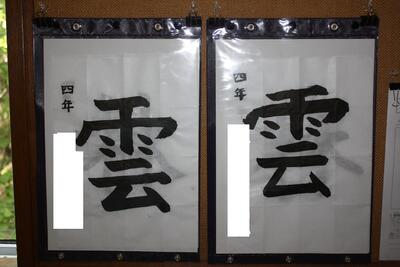 四年
雲
四年
雲